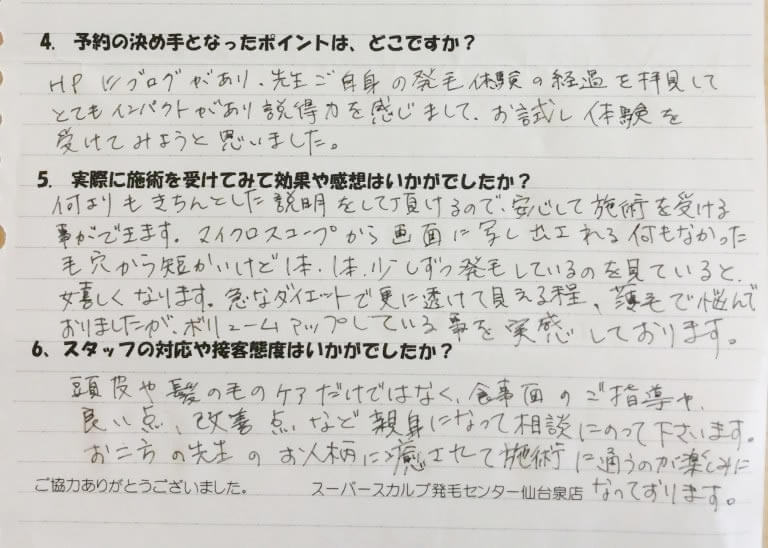 4. 予約の決め手となったポイントは、どこですか？
HPにブログがあり、先生ご自身の発毛体験の経過を拝見して
とてもインパクトがあり説得力を感じまして、お試し体験を
受けてみようと思いました。
5. 実際に施術を受けてみて効果や感想はいかがでしたか？
何よりもきちんとした説明をして頂けるので、安心して施術を受ける
事ができます。マイクロスコープから画面に写し出される何もなかった
毛穴から短かいけど1本、1本、少しずつ発毛しているのを見ていると、
嬉しくなります。急なダイエットで更に透けて見える程、薄毛で悩んで
おりましたが、ボリュームアップしている事を実感しております。
6、スタッフの対応や接客態度はいかがでしたか？
頭皮や髪の毛のケアだけではなく、食事面のご指導や、
良い点、改善点など親身になって相談にのって下さいます。
お二方の先生のお人柄に癒されて施術に通うのが楽しみに
なっております。
ご協力ありがとうございました。 スーパースカルプ発毛センター仙台泉店